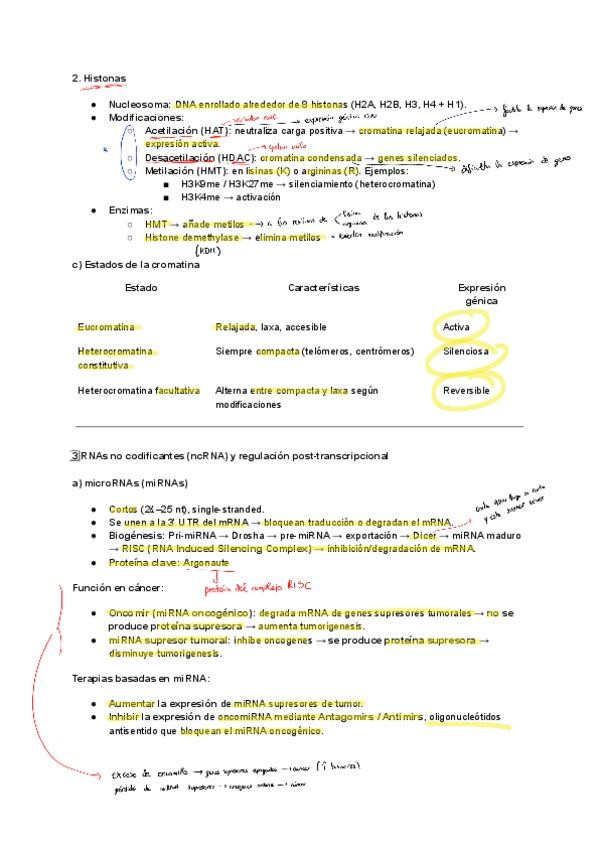 2. Histonas
● Nucleosoma: DNA enrollado alrededor de 8 histonas (H2A, H2B, H3, H4 + H1).
● Modificaciones:
→ expresión génica
→ facilita la expresión de genes
○ Acetilación (HAT): neutraliza carga positiva → cromatina relajada (eucromatina) →
expresión activa.
○ Desacetilación (HDAC): cromatina condensada → genes silenciados.
→ dificulta la expresión de genes
○ Metilación (HMT): en lisinas (K) o argininas (R). Ejemplos:
■ H3K9me / H3K27me → silenciamiento (heterocromatina)
■ H3K4me → activación
● Enzimas:
○ HMT → añade metilos → a los residuos de lisina arginina de las histonas
○ Histone demethylase → elimina metilos
(KDM)
c) Estados de la cromatina
Estado Características Expresión
génica
Eucromatina Relajada, laxa, accesible Activa
Heterocromatina Siempre compacta (telómeros, centrómeros) Silenciosa
constitutiva
Heterocromatina facultativa Alterna entre compacta y laxa según Reversible
modificaciones
3 RNAs no codificantes (ncRNA) y regulación post-transcripcional
a) microRNAs (miRNAs)
● Cortos (21–25 nt), single-stranded.
● Se unen a la 3' UTR del mRNA → bloquean traducción o degradan el mRNA.
● Biogénesis: Pri-miRNA → Drosha → pre-miRNA → exportación → Dicer → miRNA maduro
→ RISC (RNA Induced Silencing Complex) → inhibición/degradación de mRNA.
● Proteína clave: Argonaute
proteína del complejo RISC
Función en cáncer:
● Oncomir (miRNA oncogénico): degrada mRNA de genes supresores tumorales → no se
produce proteína supresora → aumenta tumorigenesis.
● miRNA supresor tumoral: inhibe oncogenes → se produce proteína supresora →
disminuye tumorigenesis.
Terapias basadas en miRNA:
● Aumentar la expresión de miRNA supresores de tumor.
● Inhibir la expresión de oncomiRNA mediante Antagomirs / Antimirs, oligonucleótidos
antisentido que bloquean el miRNA oncogénico.
exceso de oncomiRs → genes supresores apagados → cáncer (↑ tumores)
pérdida de miRNA supresores → oncogenes activos → cáncer